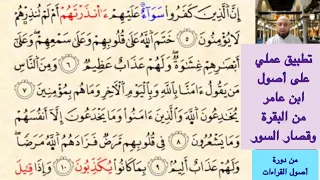 إِنَّ ٱلَّذِينَ كَفَرُوا۟ سَوَآءٌ عَلَيْهِمْ ءَأَنذَرْتَهُمْ أَمْ لَمْ تُنذِرْهُمْ
لَا يُؤْمِنُونَ ٥ خَتَمَ ٱللَّهُ عَلَىٰ قُلُوبِهِمْ وَعَلَىٰ سَمْعِهِمْ وَعَلَىٰ
أَبْصَٰرِهِمْ غِشَٰوَةٌ وَلَهُمْ عَذَابٌ عَظِيمٌ ٦ وَمِنَ ٱلنَّاسِ
مَن يَقُولُ ءَامَنَّا بِٱللَّهِ وَبِٱلْيَوْمِ ٱلْءَاخِرِ وَمَا هُم بِمُؤْمِنِينَ ٧
يُخَٰدِعُونَ ٱللَّهَ وَٱلَّذِينَ ءَامَنُوا۟ وَمَا يَخْدَعُونَ إِلَّآ أَنفُسَهُمْ
وَمَا يَشْعُرُونَ ٨ فِى قُلُوبِهِم مَّرَضٌ فَزَادَهُمُ ٱللَّهُ مَرَضًا
وَلَهُمْ عَذَابٌ أَلِيمٌ ٩ بِمَا كَانُوا۟ يُكَذِّبُونَ ١٠ وَإِذَا قِيلَ
تطبيق عملي
على أصول
ابن عامر
من البقرة
وقصار السور
من دورة
أصول القراءات